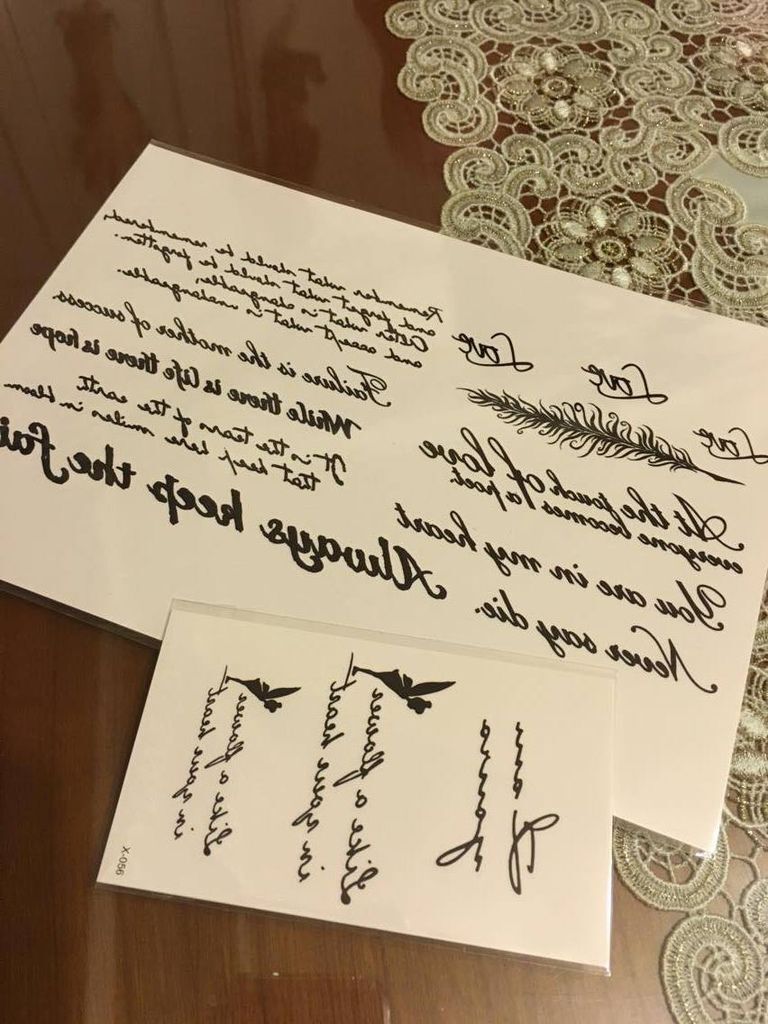 Remember what should be remembered,
and forget what should be forgotten.
Alter what is changeable,
and accept what is unchangeable.
Failure is the mother of success
While there is life there is hope
It is the tears of the earth
that keep here smiles in bloom.
Always keep the fai
Love
Love
Love
At the touch of love
everyone becomes a poet.
You are in my heart
Never say die.
Like a flower
in your heart
Like a flower
in your heart
X-056